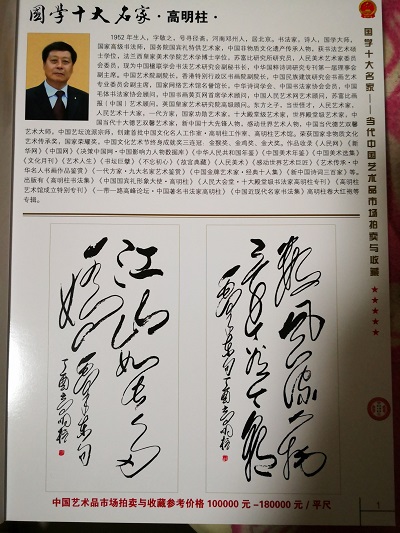 国学十大名家·高明柱·
1952年生人，字敬之，号寻径斋，河南邓州人，居北京。书法家，诗人，国学大师，
国家高级书法师，国务院国宾礼特供艺术家，中国非物质文化遗产传承人物，获书法艺术硕
士学位，法兰西皇家美术学院艺术学博士学位，苏富比研究所研究员，人民美术艺术家委员
会委员，现为中国楹联学会书法艺术研究会副秘书长，中华国粹诗词研究专刊第一届理事会
副主席，中国艺术院副院长，香港特别行政区书画院副院长，中国民族建筑研究会书画艺术
专业委员会副主席，国家网络艺术馆名誉馆长，中华诗词学会、中国书法家协会会员，中国
毛体书法家协会顾问，中国书画黄页首席学术顾问，中国人民艺网艺术顾问，苏富比画
报（中国）艺术顾问，英国皇家艺术研究院高级顾问。东方之子，当世怪才，人民艺术家，
人民艺术十大家，一代方家，国家功勋艺术家，十大殿堂级艺术家，世界殿堂级艺术家，中
国当代十大德艺双馨艺术家，新中国十大先锋人物，感动世界艺术人物，中国当代德艺双馨
艺术大师。中国艺坛流派宗师，创建首批中国文化名人工作室·高明柱工作室、高明柱艺术馆。荣获国家非物质文化
艺术传承奖，国家荣耀奖，中国文化艺术节终身成就奖三连冠，金猴奖，金鸡奖，金大奖。作品收录《人民网》《新
华网》《中国网》《决策中国网·中国影响力人物数据库》《中华人民共和国年鉴》《中国美术年鉴》《中国美术选集》
《文化月刊》《艺术人生》《书坛巨擘》《不忘初心》《故宫典藏》《人民美术》《感动世界艺术巨匠》《艺术传承·中
华名人书画作品鉴赏》《一代方家·九大名家艺术鉴赏》《中国金牌艺术家·经典十人集》《新中国诗词三百家》等。
出版有《高明柱书法集》《中国国宾礼形象大使·高明柱》《人民大会堂·十大殿堂级书法家高明柱专刊》《高明柱
艺术馆成立特别专刊》《一带一路高峰论坛·中国著名书法家高明柱》《中国近现代名家书法集》高明柱卷大红袍等
专辑。
江山如此多
娇
丁酉高明柱
数风流人物
还看今朝
丁酉高明柱
中国艺术品市场拍卖与收藏参考价格 100000元-180000元/平尺
国学十大名家——当代中国艺术品市场拍卖与收藏
1